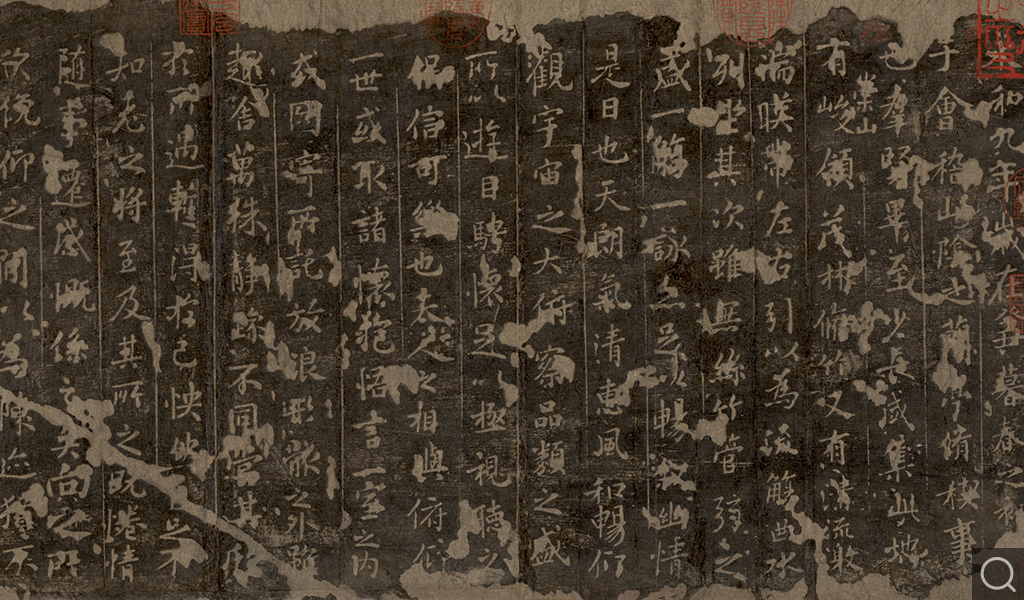 和九年歲在癸丑暮春之初
于會稽山陰之蘭亭脩禊事
也羣賢畢至少長咸集此地
有崇山峻領茂林脩竹又有清流激
湍暎帶左右引以為流觴曲水
列坐其次雖無絲竹管弦之
盛一觴一詠亦足以暢叙幽情
是日也天朗氣清惠風和暢仰
觀宇宙之大俯察品類之盛
所以遊目騁懷足以極視聽之
娛信可樂也夫人之相與俯仰
一世或取諸懷抱悟言一室之內
或因寄所託放浪形骸之外雖
趣舍萬殊靜躁不同當其欣
於所遇蹔得於己怏然自足不
知老之將至及其所之既惓情
隨事遷感慨係之矣向之所
欣俛仰之間以為陳迹猶不